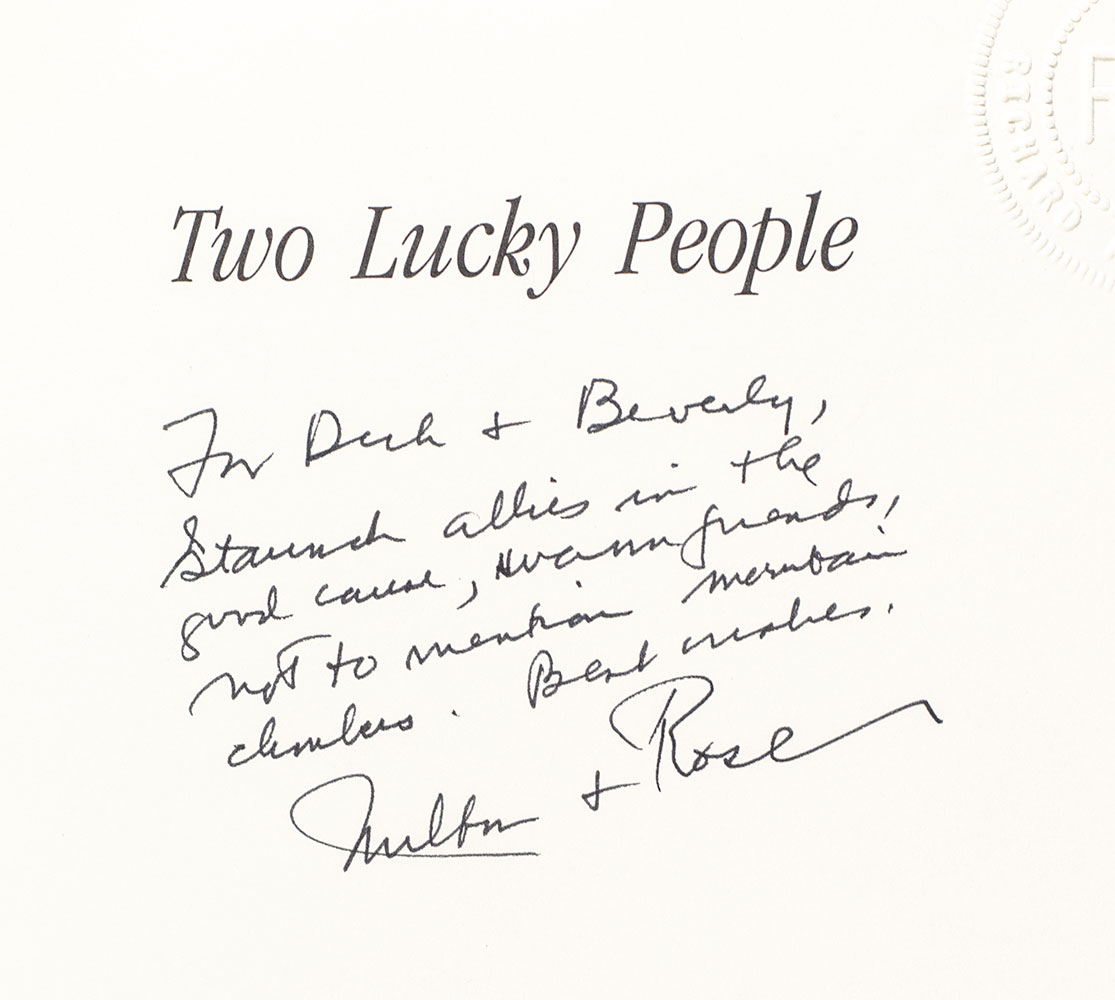 RICHARD
Two Lucky People
For Dick + Beverly,
Staunch allies in the
good cause, warm friends,
not to mention mountain
climbers. Best wishes.
Milton + Rose